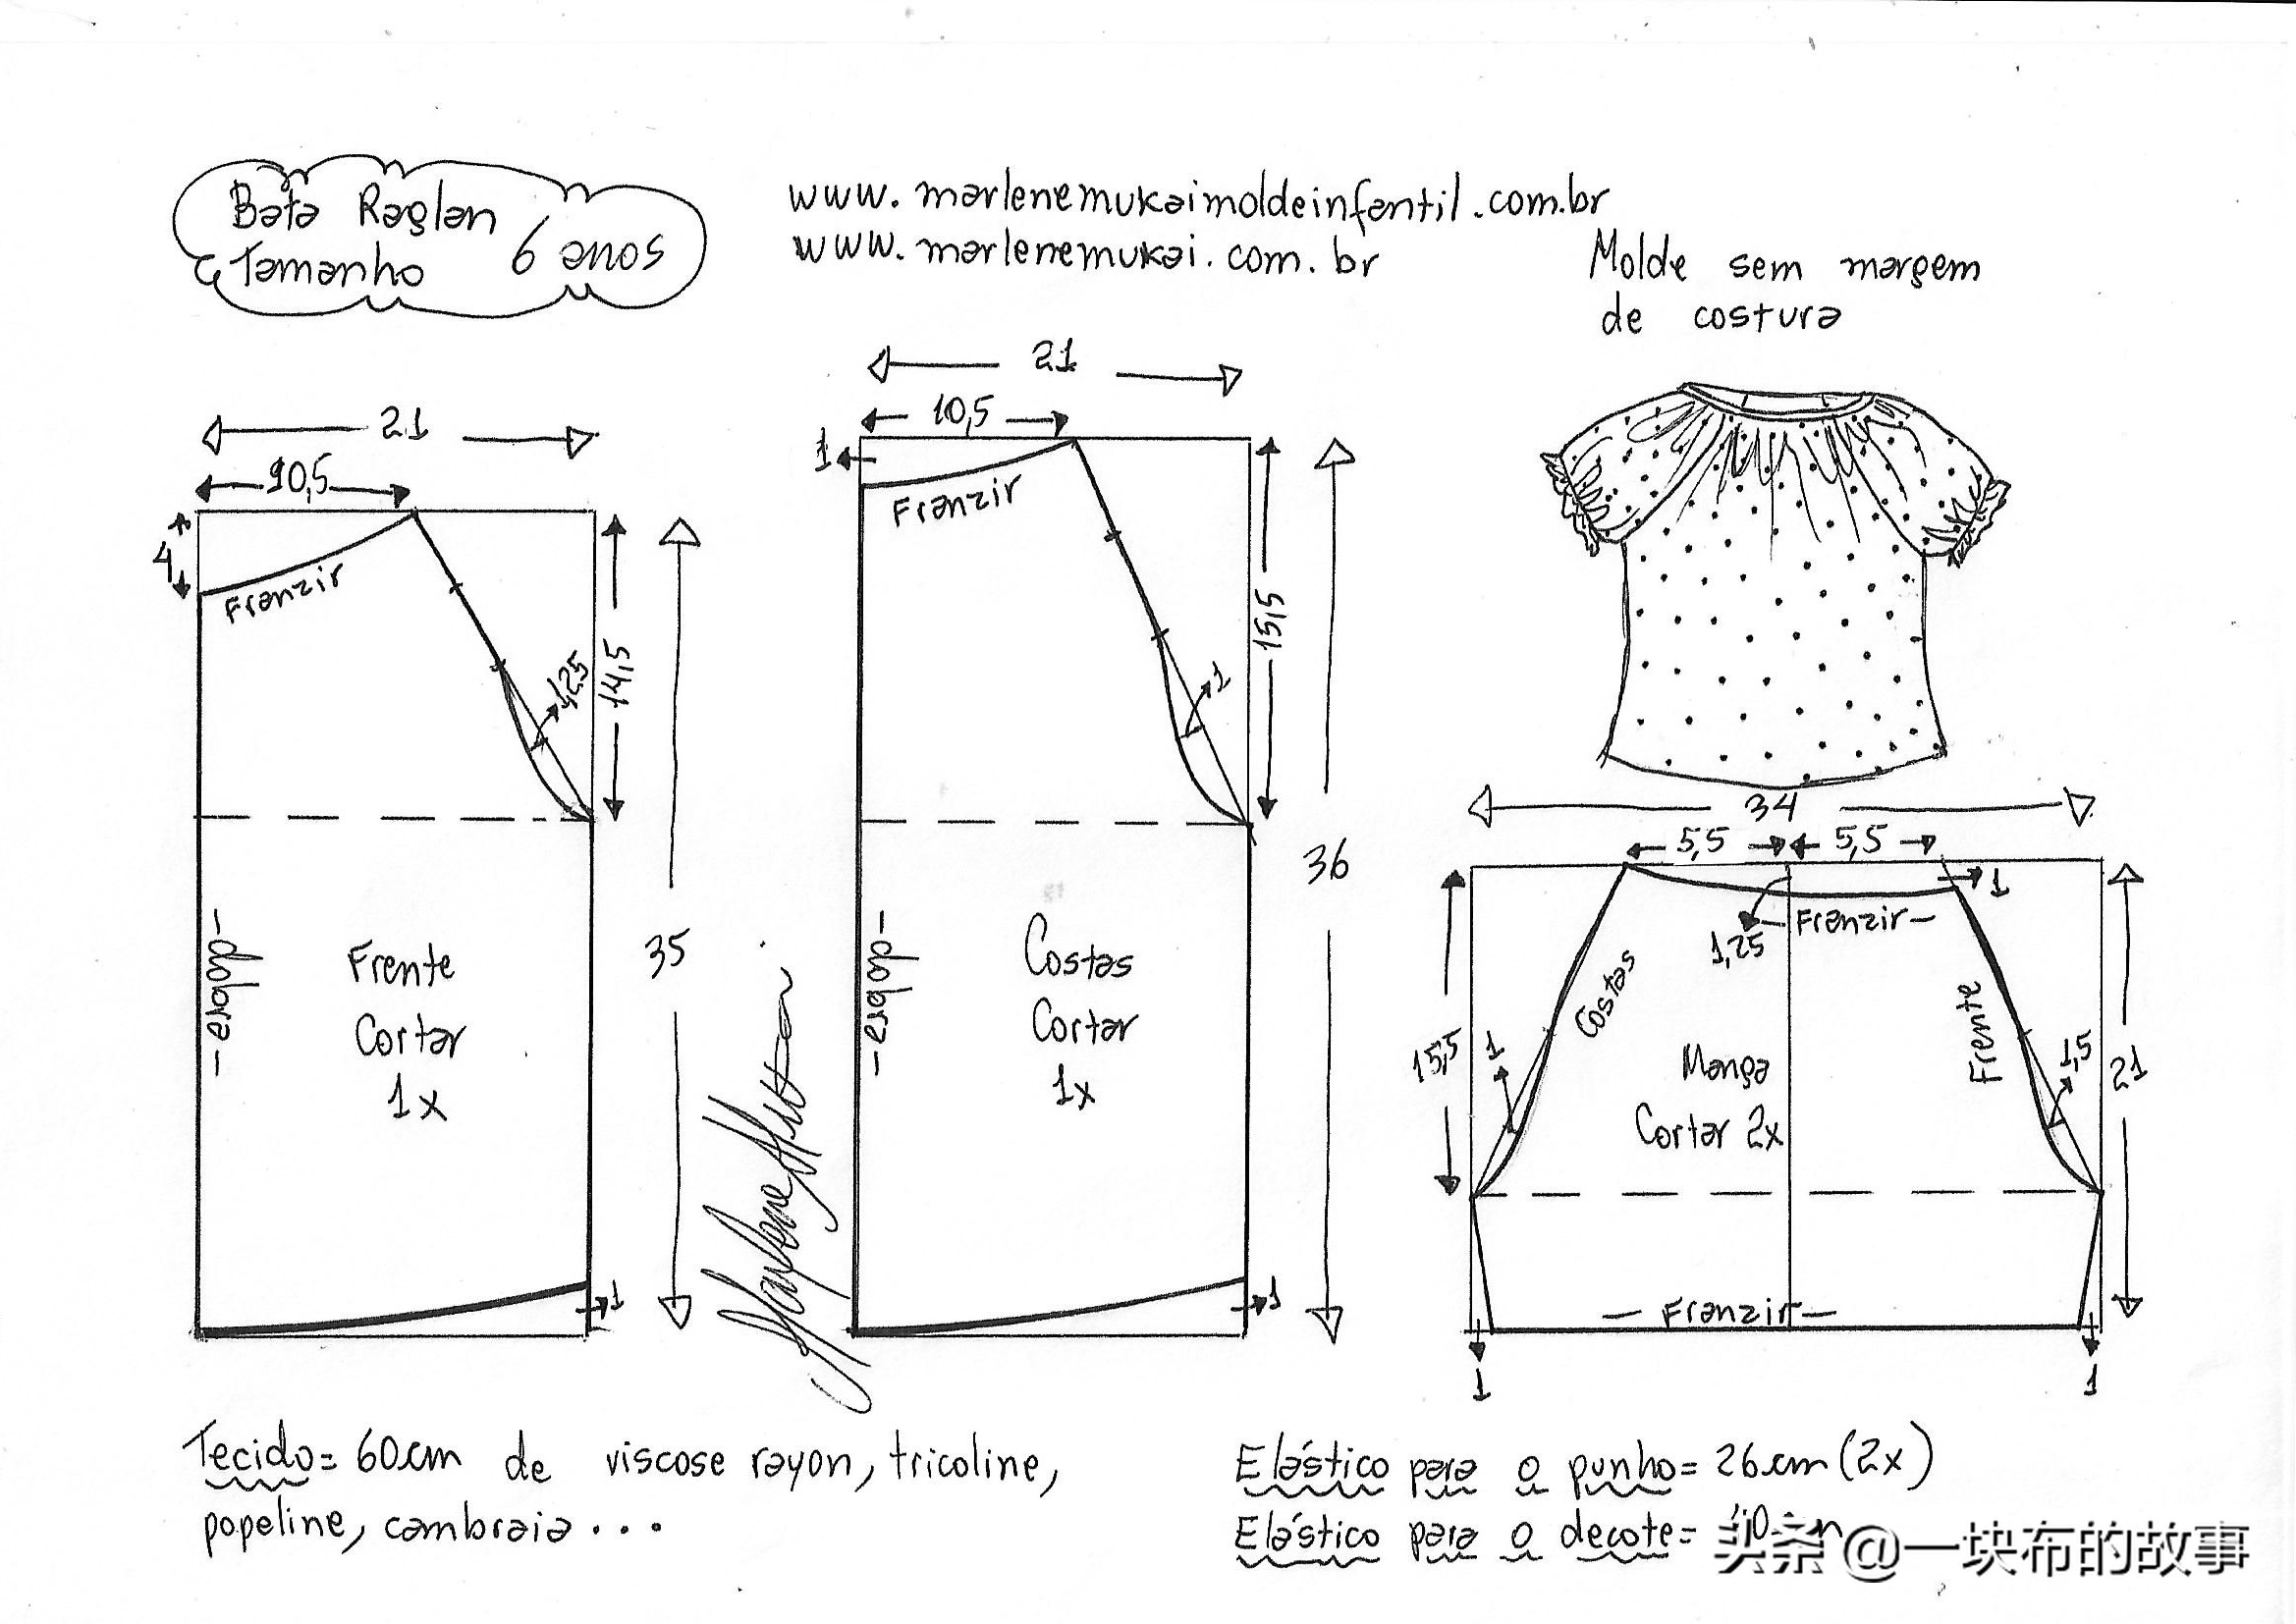 Bata Raglan
Tamanho 6 anos
www.marlenemukaimoldeinfantil.com.br
www.marlenemukai.com.br
Molde sem margem
de costura
21
10,5
4
Franzir
1,25
14,5
35
-dobra-
Frente
Cortar
1x
1
21
10,5
1
Franzir
1
15,5
36
-dobra-
Costas
Cortar
1x
1
34
5,5 5,5
1
1,25
Franzir-
Costas
Frente
15,5
1
1,5
21
Manga
Cortar 2x
- Franzir -
1
1
Tecido= 60cm de viscose rayon, tricoline,
popeline, cambraia...
Elástico para o punho= 26cm (2x)
Elástico para o decote=
头条 @一块布的故事